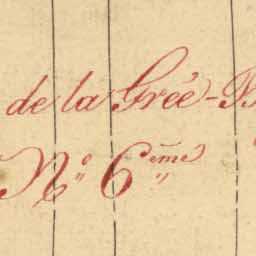 de la Grée-
No 6ème